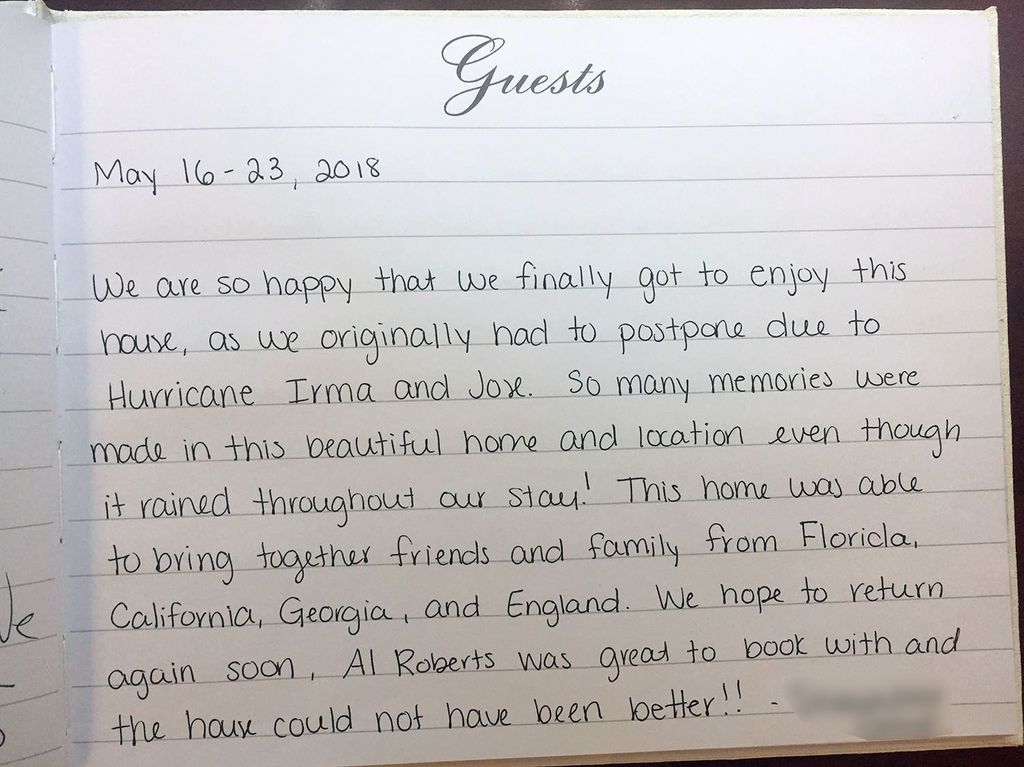 Guests
May 16-23, 2018
We are so happy that we finally got to enjoy this
house, as we originally had to postpone due to
Hurricane Irma and Jose. So many memories were
made in this beautiful home and location even though
it rained throughout our stay! This home was able
to bring together friends and family from Florida,
California, Georgia, and England. We hope to return
again soon, Al Roberts was great to book with and
the house could not have been better!! -